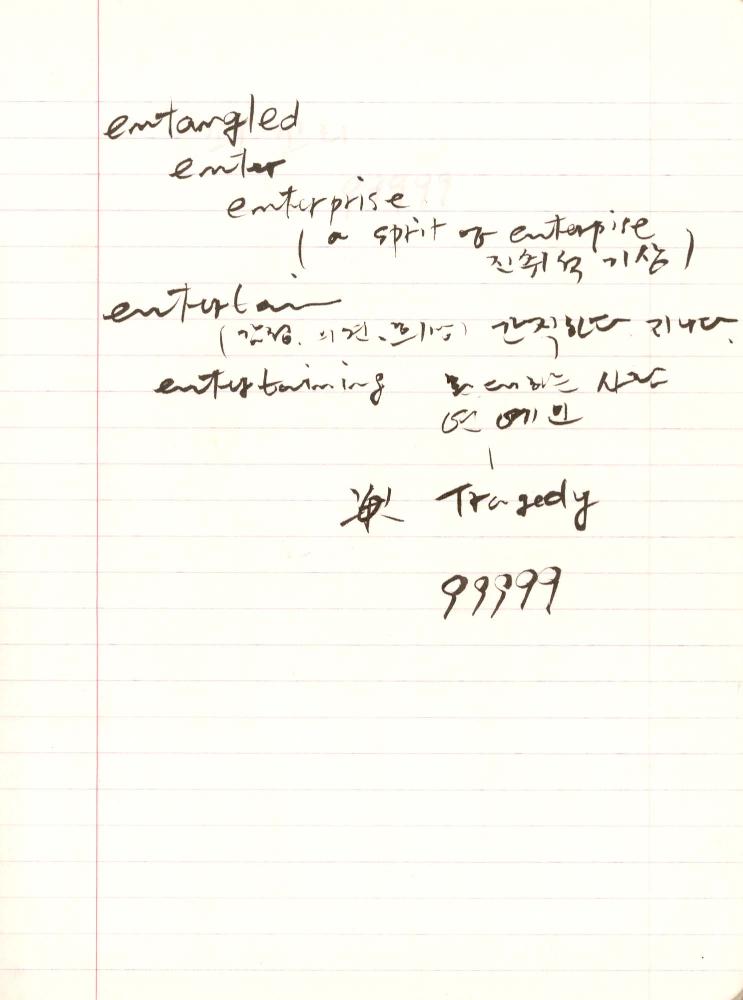 entangled
enter
enterprise
( a sprit of enterpise
진취적 기상 )
entertain
(감정, 의견, 희망) 간직한다 지니다.
entertaining 초대하는 사람
연예인
Tragedy
99999